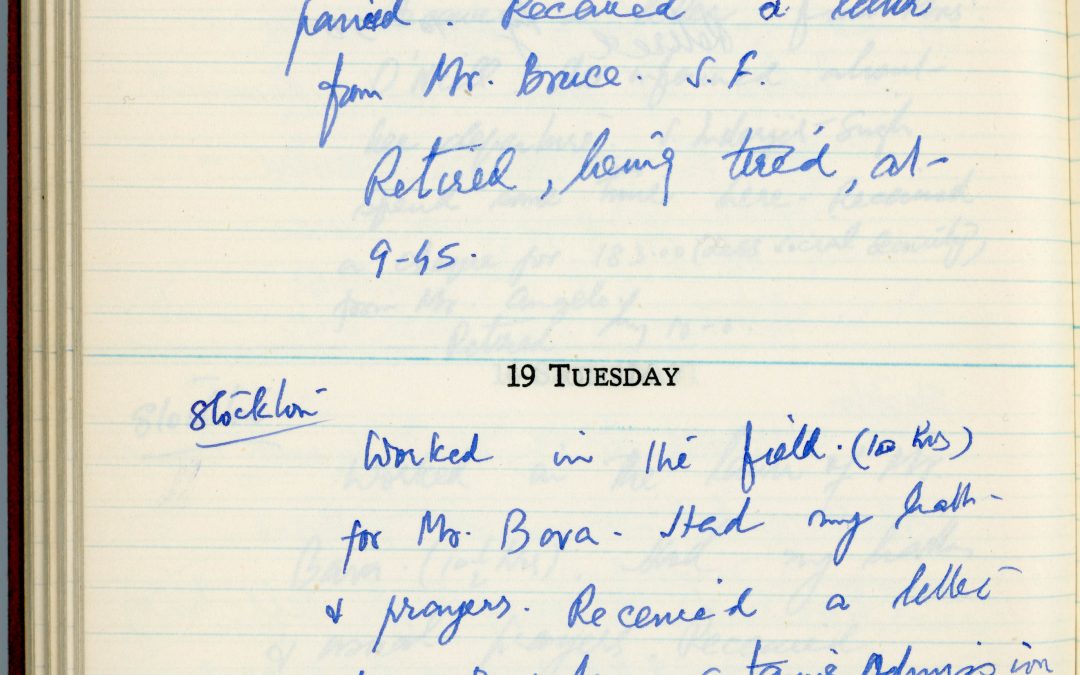 Received a letter
from Mr. Bruce. S. F.
Retired, being tired, at
9-45.
19 TUESDAY
Stockton
Worked in the field. (10 hrs)
for Mr. Bava. Had my bath
& prayers. Received a letter
Admission